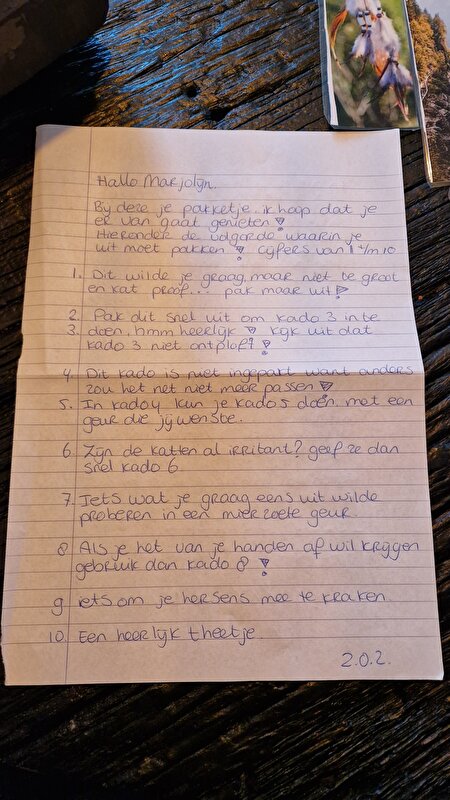 Hallo Marjolijn.
Bij deze je pakketje. ik hoop dat je
er van gaat genieten!
Hieronder de volgorde waarin je
uit moet pakken! cijfers van 1 t/m 10
1. Dit wilde je graag, maar niet te groot
en kat proof... pak maar uit!
2. Pak dit snel uit om kado 3 in te
3. doen, hmm heerlijk! kijk uit dat
kado 3 niet ontploft!
4. Dit kado is niet ingepakt want anders
zou het net niet meer passen!
5. In kado 4 kun je kado 5 doen. met een
geur die jij wenste.
6. Zijn de katten al irritant? geef ze dan
snel kado 6
7. Iets wat je graag eens uit wilde
proberen in een mierzoete geur.
8 Als je het van je handen af wil krijgen
gebruik dan kado 8!
9 iets om je hersens mee te kraken.
10. Een heerlijk theetje.
2.0.2.